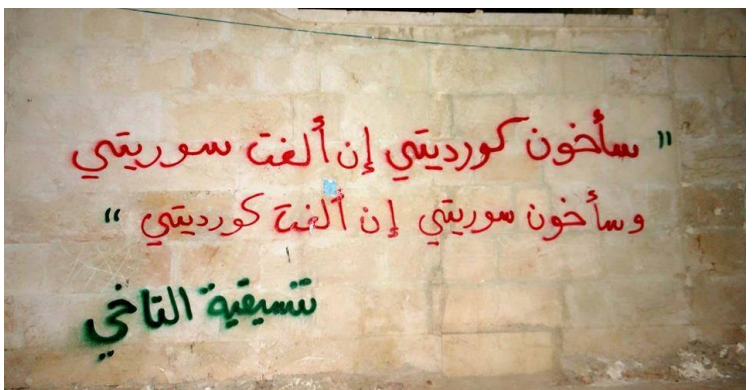 " سأخون كورديتي إن ألغت سوريتي
وسأخون سوريتي إن ألغت كورديتي "
تنسيقية التاخي